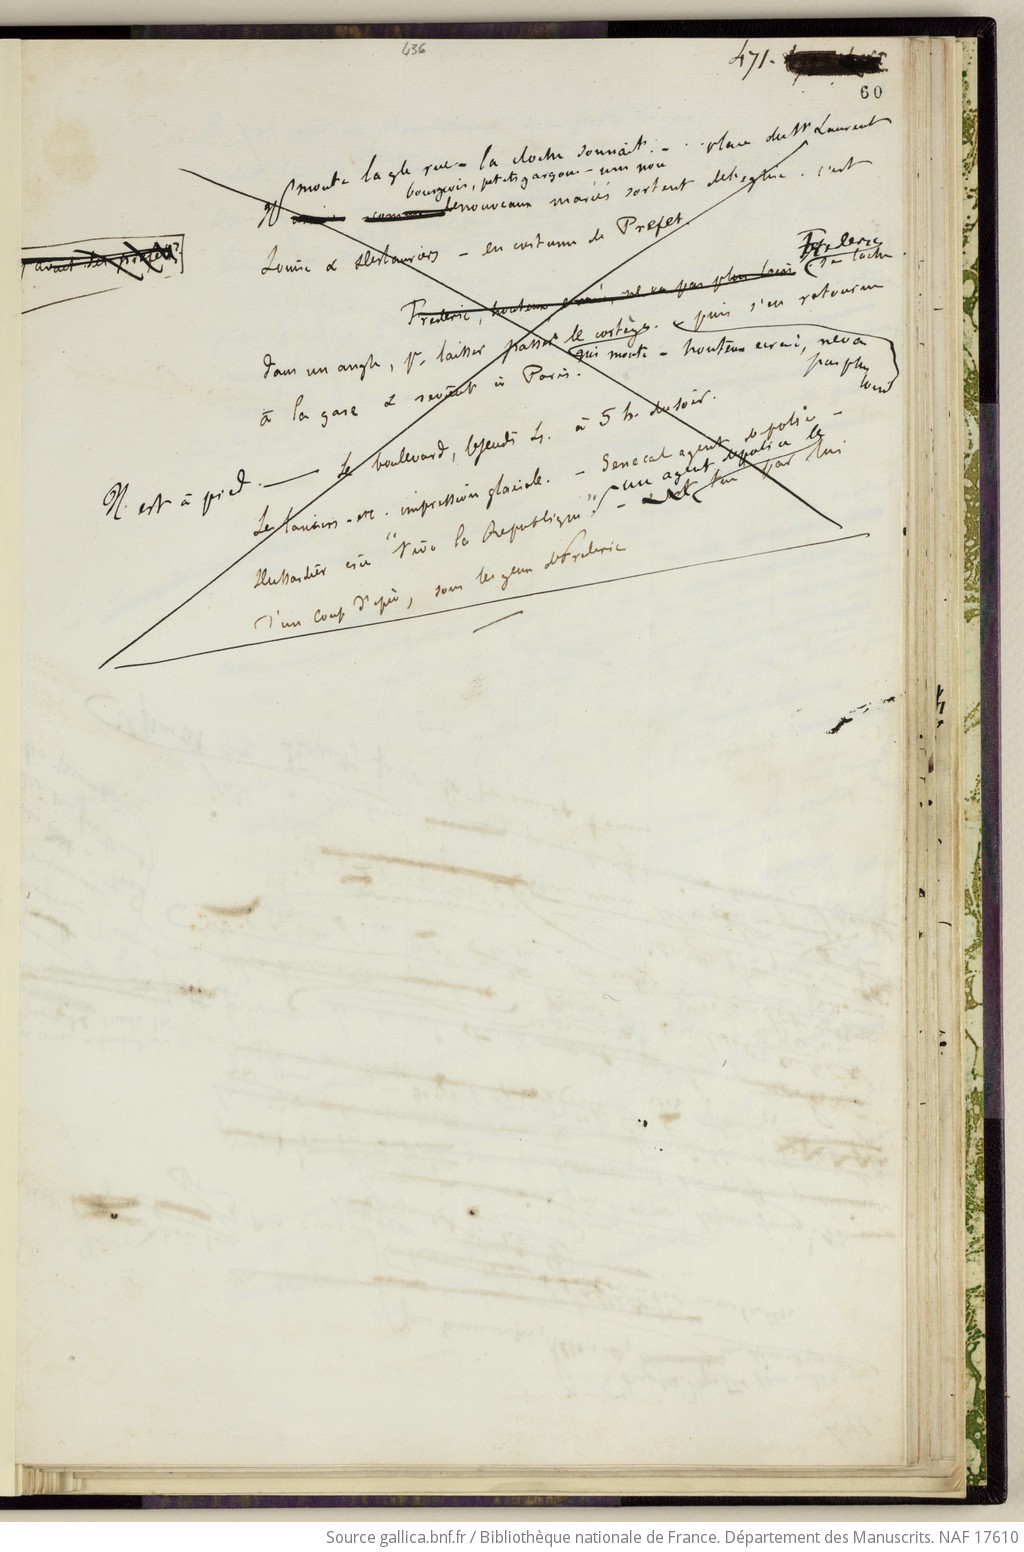 436
471.
60
Il monte la gde rue – la cloche sonnait. – place du Mé Laurent
bourgeois, petits garçons – une noce
de nouveaux mariés sortent de l'église. c'est
Louise & Deslauriers – en costume de Préfet.
Frederic
se cache
Frederic, honteux, écrasé, ne va pas plus loin
dans un angle, pr. laisser passer le cortège. puis s'en retourne
qui monte – honteux écrasé, ne va
pas plus
loin
à la gare & revient à Paris.
Il est à pied. — Le boulevard, le jeudi 4. à 5 h. du soir.
Les lanciers – etc. impression glaciale. – Senecal agent de police –
un agent de police le
Dussardier crie "Vive la Republique". – est tué par lui
d'un coup d'épée, sous les yeux de Frederic
Source gallica.bnf.fr / Bibliothèque nationale de France. Département des Manuscrits. NAF 17610